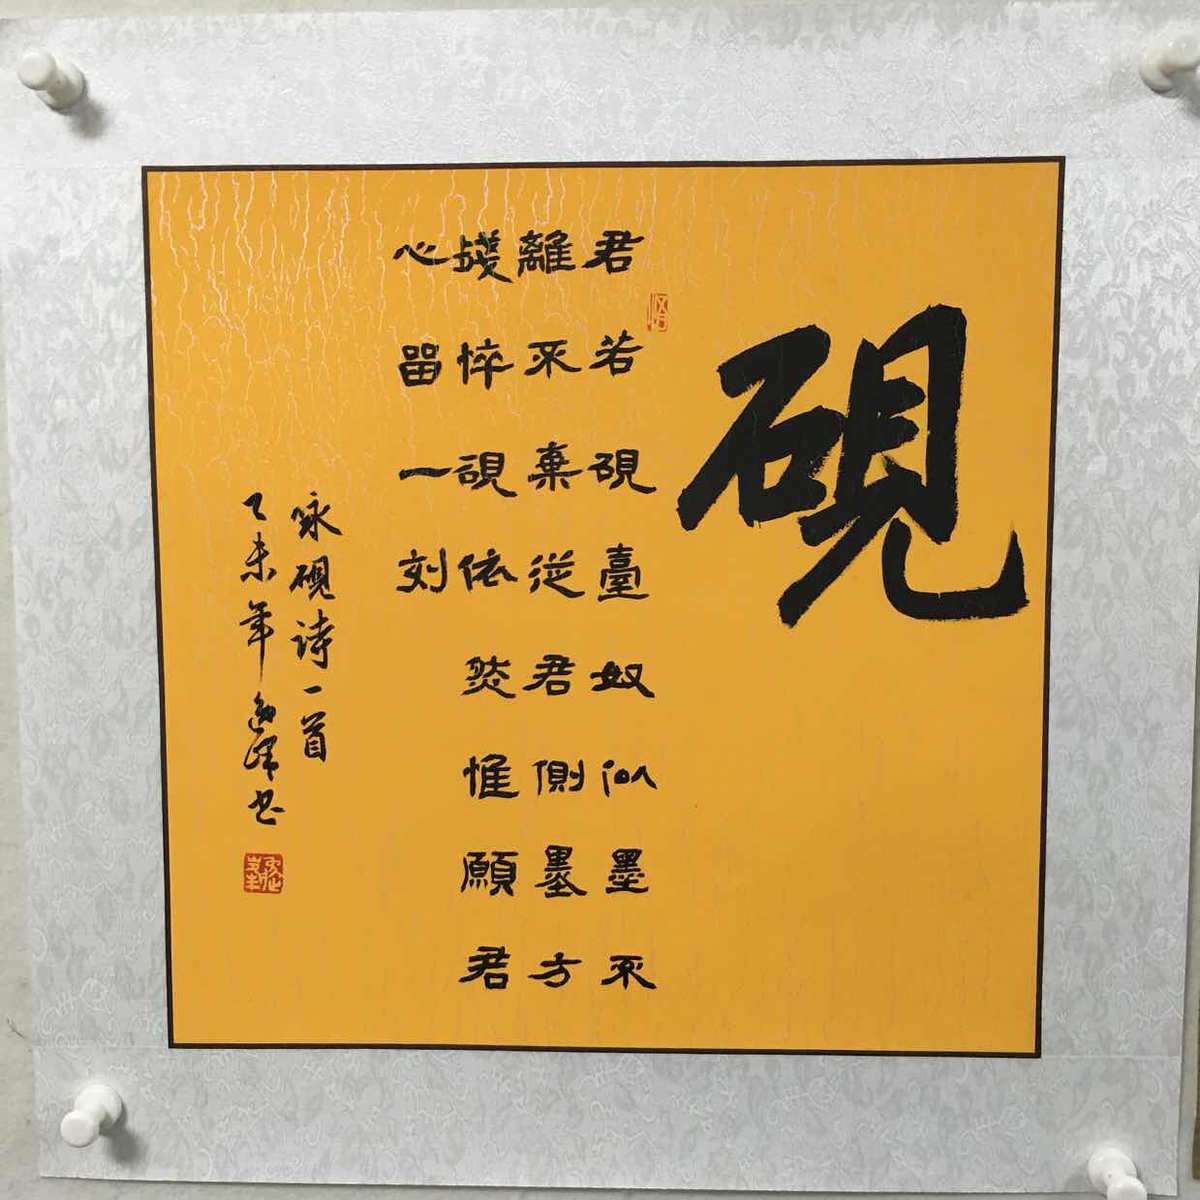 硯
君若硯臺奴似墨不
離不棄從君側墨方
殘悴硯依然惟願君
心留一刻
咏硯诗一首
乙未年逸峰书